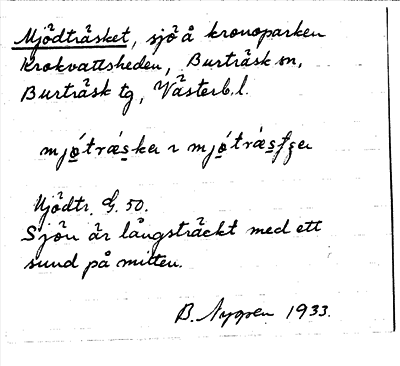 Mjödträsket, sjö å kronoparken
Krokvattsheden, Burträsk sn,
Burträsk tg, Västerb. l.
mjó̠træ̀s̠ker ɿ mjó̠træ̀s̠fʒer
Mjödtr. G. 50.
Sjön är långsträckt med ett
sund på mitten.
B. Nygren 1933.